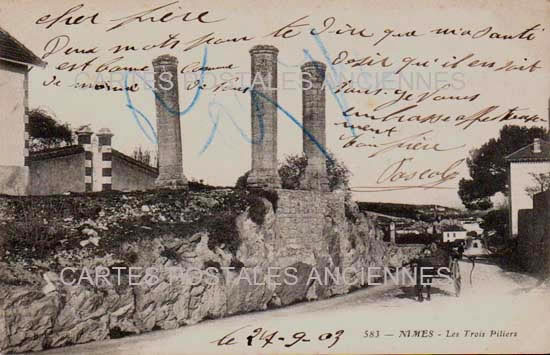 cher frère
Deux mots pour te dire que ma santé
est bonne comme désir qu'il en soit
de même de vous tous je vous
embrasse affectueuse
ment
ton frère
Pascal
CARTES POSTALES ANCIENNES
CARTES POSTALES ANCIENNES
583 - NIMES - Les Trois Piliers
le 24-9-03